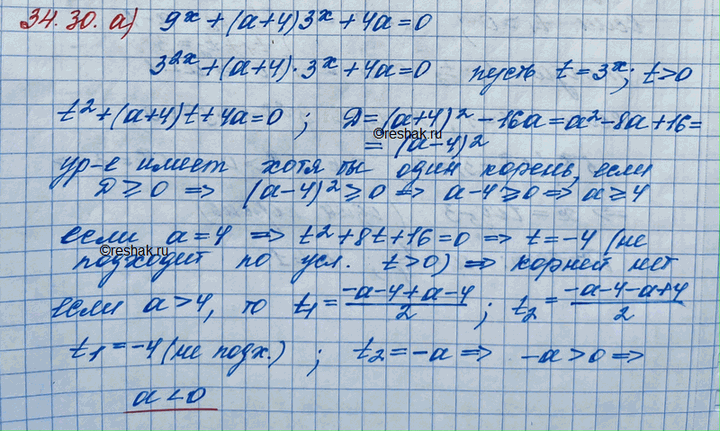 34.30. а) 9^x + (a+4)3^x + 4a = 0
3^{2x} + (a+4)·3^x + 4a = 0 пусть t = 3^x; t>0
t² + (a+4)t + 4a = 0 ; Д = (a+4)² - 16a = a² - 8a + 16 =
©reshak.ru
= (a-4)²
ур-е имеет хотя бы один корень, если
Д ≥ 0 => (a-4)² ≥ 0 => a-4 ≥ 0 => a ≥ 4
если a = 4 => t² + 8t + 16 = 0 => t = -4 (не
©reshak.ru
подходит по усл. t>0) => корней нет
если a > 4, то t₁ = (-a-4+a-4)/2 ; t₂ = (-a-4-a+4)/2
t₁ = -4 (не подх.) ; t₂ = -a => -a > 0 =>
a < 0